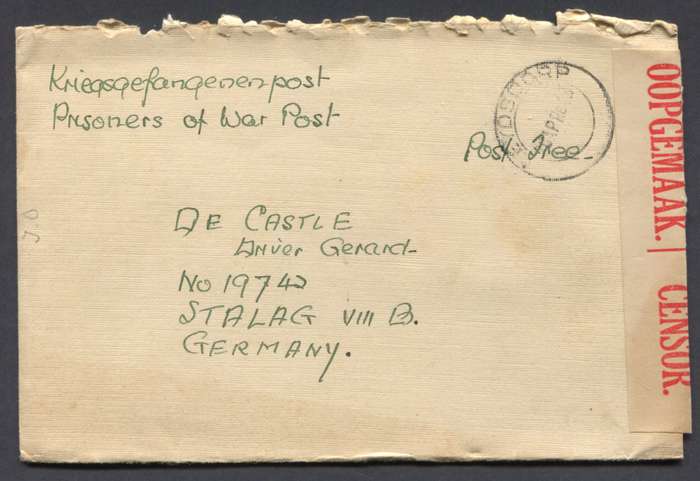 Kriegsgefangenenpost
Prisoners of War Post
Post Free
DE CASTLE
Driver Gerard
No 19742
STALAG VIII B.
GERMANY.
OOPGEMAAK. | CENSOR.
APR
J.D